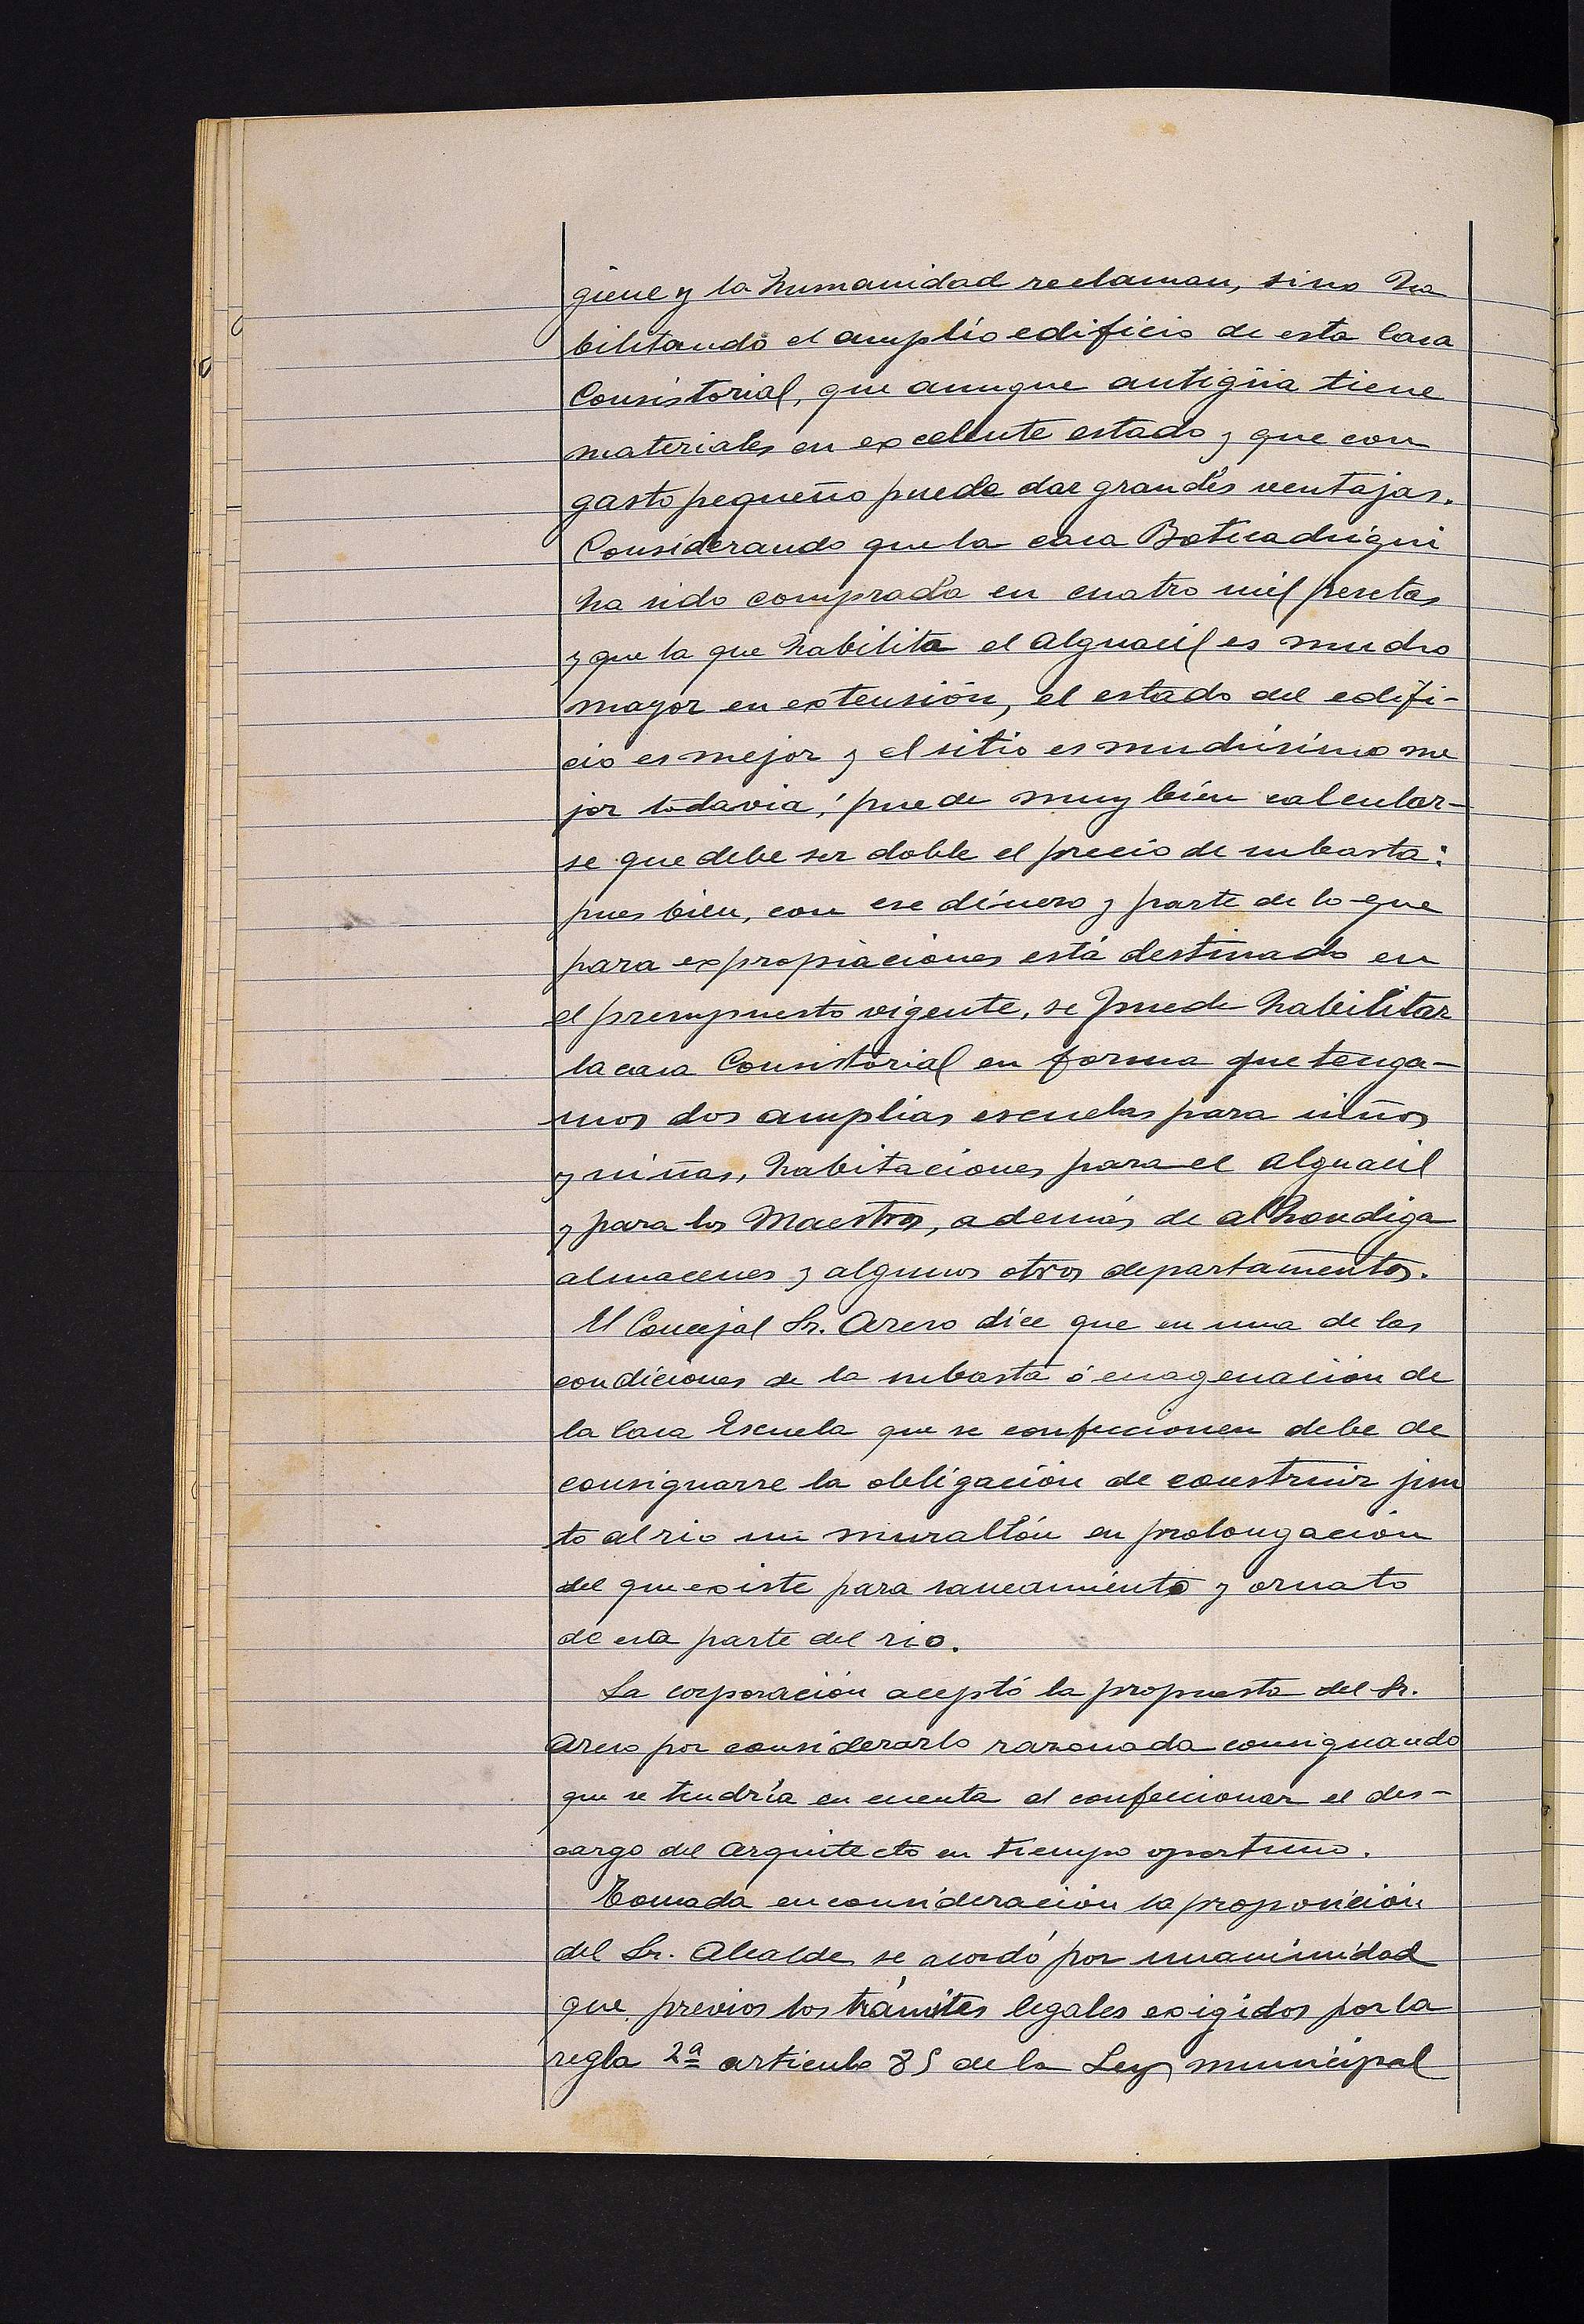 giene y la humanidad reclaman, sino ha
bilitando el amplio edificio de esta Casa
Consistorial, que aunque antigüa tiene
materiales en excelente estado y que con
gasto pequeño puede dar grandes ventajas.
Considerando que la casa Boticadrigui
ha sido comprada en cuatro mil pesetas
y que la que habilita el alguacil es mucho
mayor en extensión, el estado del edifi-
cio es mejor y el sitio es muchisimo me
jor todavia, puede muy bien calcular-
se que debe ser doble el precio de subasta:
pues bien, con ese dinero y parte de lo que
para expropiaciones está destinado en
el presupuesto vigente, se puede habilitar
la casa Consistorial en forma que tenga-
mos dos amplias escuelas para niños
y niñas, habitaciones para el alguacil
y para los Maestros, además de alhondiga
almacenes y algunos otros departamentos.
El Concejal Sr. Arero dice que en una de las
condiciones de la subasta ó enagenación de
la Casa Escuela que se confeccionen debe de
consignarse la obligación de construir jun
to al rio un murallón en prolongación
del que existe para saneamiento y ornato
de esa parte del rio.
La corporación aceptó la propuesta del Sr.
Arero por considerarlo razonada consignando
que se tendría en cuenta al confeccionar el des-
cargo del Arquitecto en tiempo oportuno.
Tomada en consideración la proposición
del Sr. Alcalde se acordó por unanimidad
que previos los trámites legales exigidos por la
regla 2ª articulo 85 de la Ley municipal